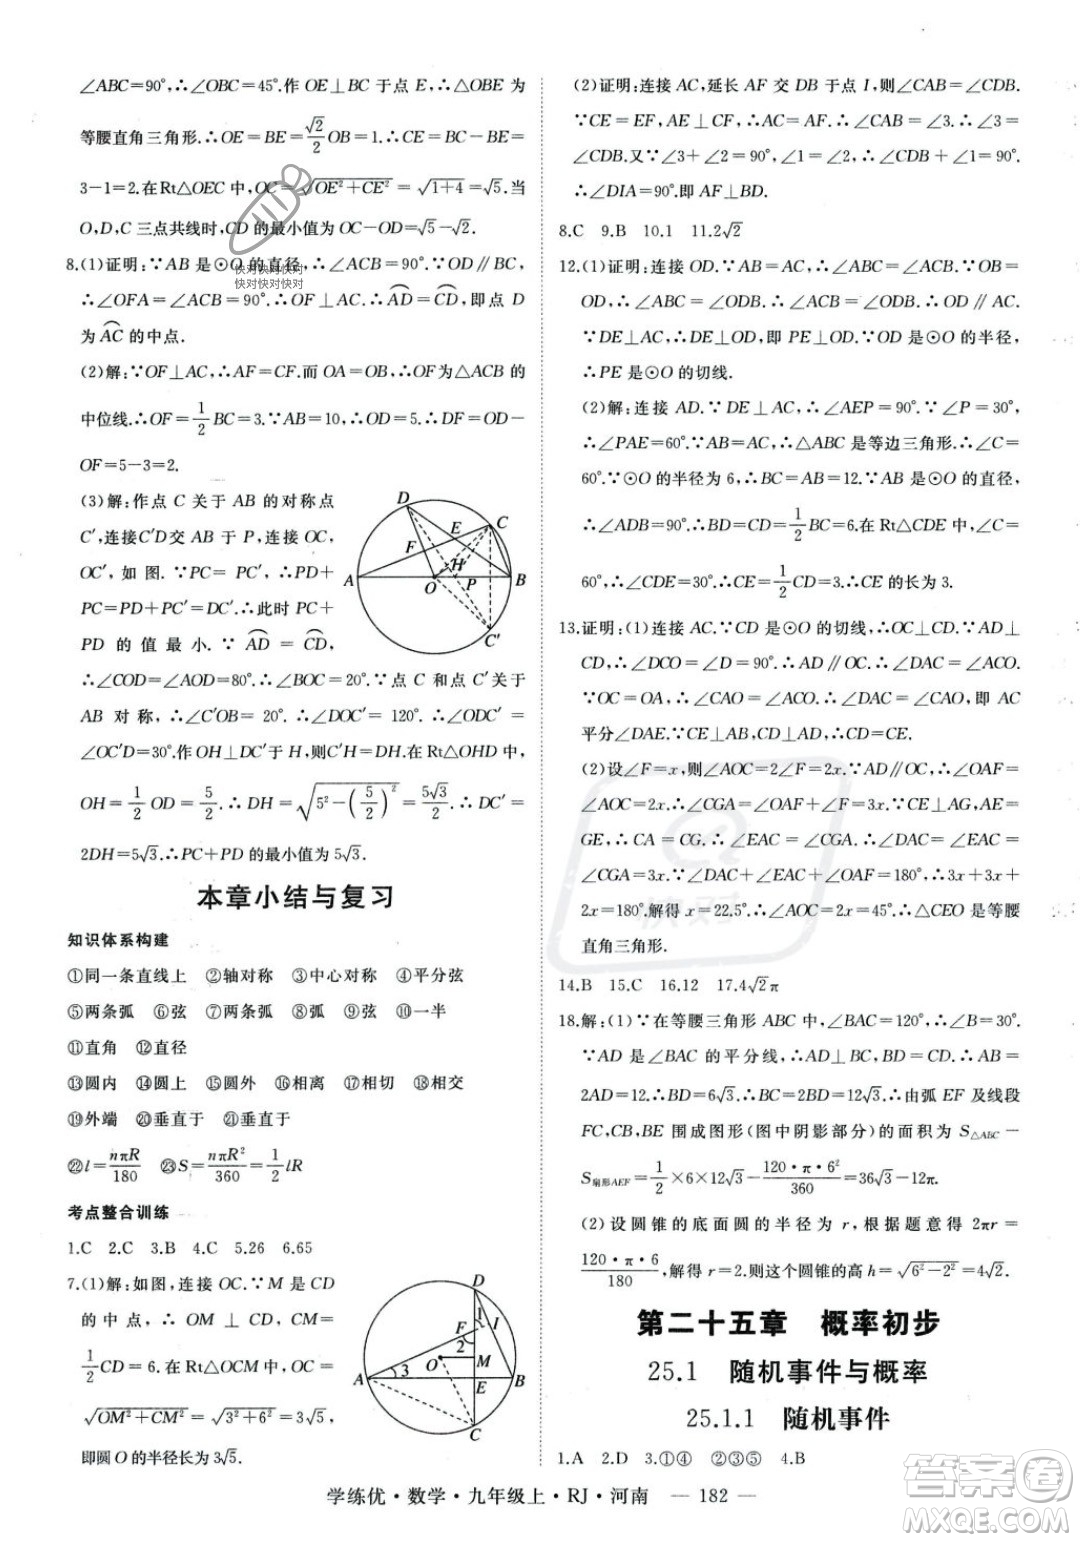 ∠ABC=90°.∴∠OBC=45°.作 OE⊥BC 于点 E,∴△OBE 为
等腰直角三角形.∴OE=BE=√2/2 OB=1.∴CE=BC−BE=
3−1=2.在 Rt△OEC 中,OC=√(OE²+CE²)=√(1+4)=√5.当
O,D,C 三点共线时,CD 的最小值为 OC−OD=√5−√2.
8.(1)证明:∵AB 是⊙O 的直径,∴∠ACB=90°.∵OD∥BC,
∴∠OFA=∠ACB=90°.∴OF⊥AC.∴⌒AD=⌒CD,即点 D
为⌒AC 的中点.
(2)解:∵OF⊥AC,∴AF=CF.而 OA=OB,∴OF 为△ACB 的
中位线.∴OF=1/2 BC=3.∵AB=10,∴OD=5.∴DF=OD−
OF=5−3=2.
(3)解:作点 C 关于 AB 的对称点
C′,连接C′D交 AB 于 P,连接 OC,
OC′,如图.∵PC=PC′,∴PD+
PC=PD+PC′=DC′.∴此时 PC+
PD 的值最小.∵⌒AD=⌒CD,
∴∠COD=∠AOD=80°.∴∠BOC=20°.∵点 C 和点 C′关于
AB 对称,∴∠C′OB=20°.∴∠DOC′=120°.∴∠ODC′=
∠OC′D=30°.作OH⊥DC′于H,则C′H=DH.在 Rt△OHD 中,
OH=1/2 OD=5/2.∴DH=√(5²−(5/2)²)=5√3/2.∴DC′=
2DH=5√3.∴PC+PD 的最小值为 5√3.
本章小结与复习
知识体系构建
①同一条直线上 ②轴对称 ③中心对称 ④平分弦
⑤两条弧 ⑥弦 ⑦两条弧 ⑧弧 ⑨弦 ⑩一半
⑪直角 ⑫直径
⑬圆内 ⑭圆上 ⑮圆外 ⑯相离 ⑰相切 ⑱相交
⑲外端 ⑳垂直于 ㉑垂直于
㉒l=nπR/180 ㉓S=nπR²/360=1/2 lR
考点整合训练
1.C 2.C 3.B 4.C 5.26 6.65
7.(1)解:如图,连接 OC.∵M 是 CD
的中点,∴OM⊥CD,CM=
1/2 CD=6.在 Rt△OCM 中,OC=
√(OM²+CM²)=√(3²+6²)=3√5,
即圆 O 的半径长为 3√5.
(2)证明:连接 AC,延长 AF 交 DB 于点 I,∴∠CAB=∠CDB.
∵CE=EF,AE⊥CF,∴AC=AF.∴∠CAB=∠3.∴∠3=
∠CDB.又∵∠3+∠2=90°,∠1=∠2,∴∠CDB+∠1=90°.
∴∠DIA=90°.即 AF⊥BD.
8.C 9.B 10.1 11.2√2
12.(1)证明:连接 OD.∵AB=AC,∴∠ABC=∠ACB.∵OB=
OD,∴∠ABC=∠ODB.∴∠ACB=∠ODB.∴OD∥AC.
∵DE⊥AC,∴DE⊥OD,即 PE⊥OD.∵OD 是⊙O 的半径,
∴PE 是⊙O 的切线.
(2)解:连接 AD.∵DE⊥AC,∴∠AEP=90°.∵∠P=30°,
∴∠PAE=60°.∵AB=AC,∴△ABC 是等边三角形.∴∠C=
60°.∵⊙O 的半径为 6,∴BC=AB=12.∵AB 是⊙O 的直径,
∴∠ADB=90°.∴BD=CD=1/2 BC=6.在 Rt△CDE 中,∠C=
60°,∴∠CDE=30°.∴CE=1/2 CD=3.∴CE 的长为 3.
13.证明:(1)连接 AC.∵CD 是⊙O 的切线,∴OC⊥CD.∵AD⊥
CD,∴∠DCO=∠D=90°.∴AD∥OC.∴∠DAC=∠ACO.
∵OC=OA,∴∠CAO=∠ACO.∴∠DAC=∠CAO,即 AC
平分∠DAE.∵CE⊥AB,CD⊥AD,∴CD=CE.
(2)设∠F=x,则∠AOC=2∠F=2x.∵AD∥OC,∴∠OAF=
∠AOC=2x.∴∠CGA=∠OAF+∠F=3x.∵CE⊥AG,AE=
GE.∴CA=CG.∴∠EAC=∠CGA=3x.∴∠DAC=∠EAC=
∠CGA=3x.又∵∠DAC+∠EAC+∠OAF=180°,∴3x+3x+
2x=180°.解得 x=22.5°.∴∠AOC=2x=45°.∴△CEO 是等腰
直角三角形.
14.B 15.C 16.12 17.4√2π
18.解:(1)∵在等腰三角形 ABC 中,∠BAC=120°,∴∠B=30°.
∵AD 是∠BAC 的平分线,∴AD⊥BC,BD=CD.∴AB=
2AD=12.∴BD=6√3.∴BC=2BD=12√3.∴由弧 EF 及线段
FC,CB,BE 围成图形(图中阴影部分)的面积为 S△ABC−
S扇形AEF=1/2×6×12√3−120·π·6²/360=36√3−12π.
(2)设圆锥的底面圆的半径为 r,根据题意得 2πr=
120·π·6/180,解得 r=2.则这个圆锥的高 h=√(6²−2²)=4√2.
第二十五章 概率初步
25.1 随机事件与概率
25.1.1 随机事件
1.A 2.D 3.①④ ②③⑤ 4.B
学练优·数学·九年级上·RJ·河南 — 182 —
快对快对快对
快对快对快对
快对
答案圈
MXQE.COM